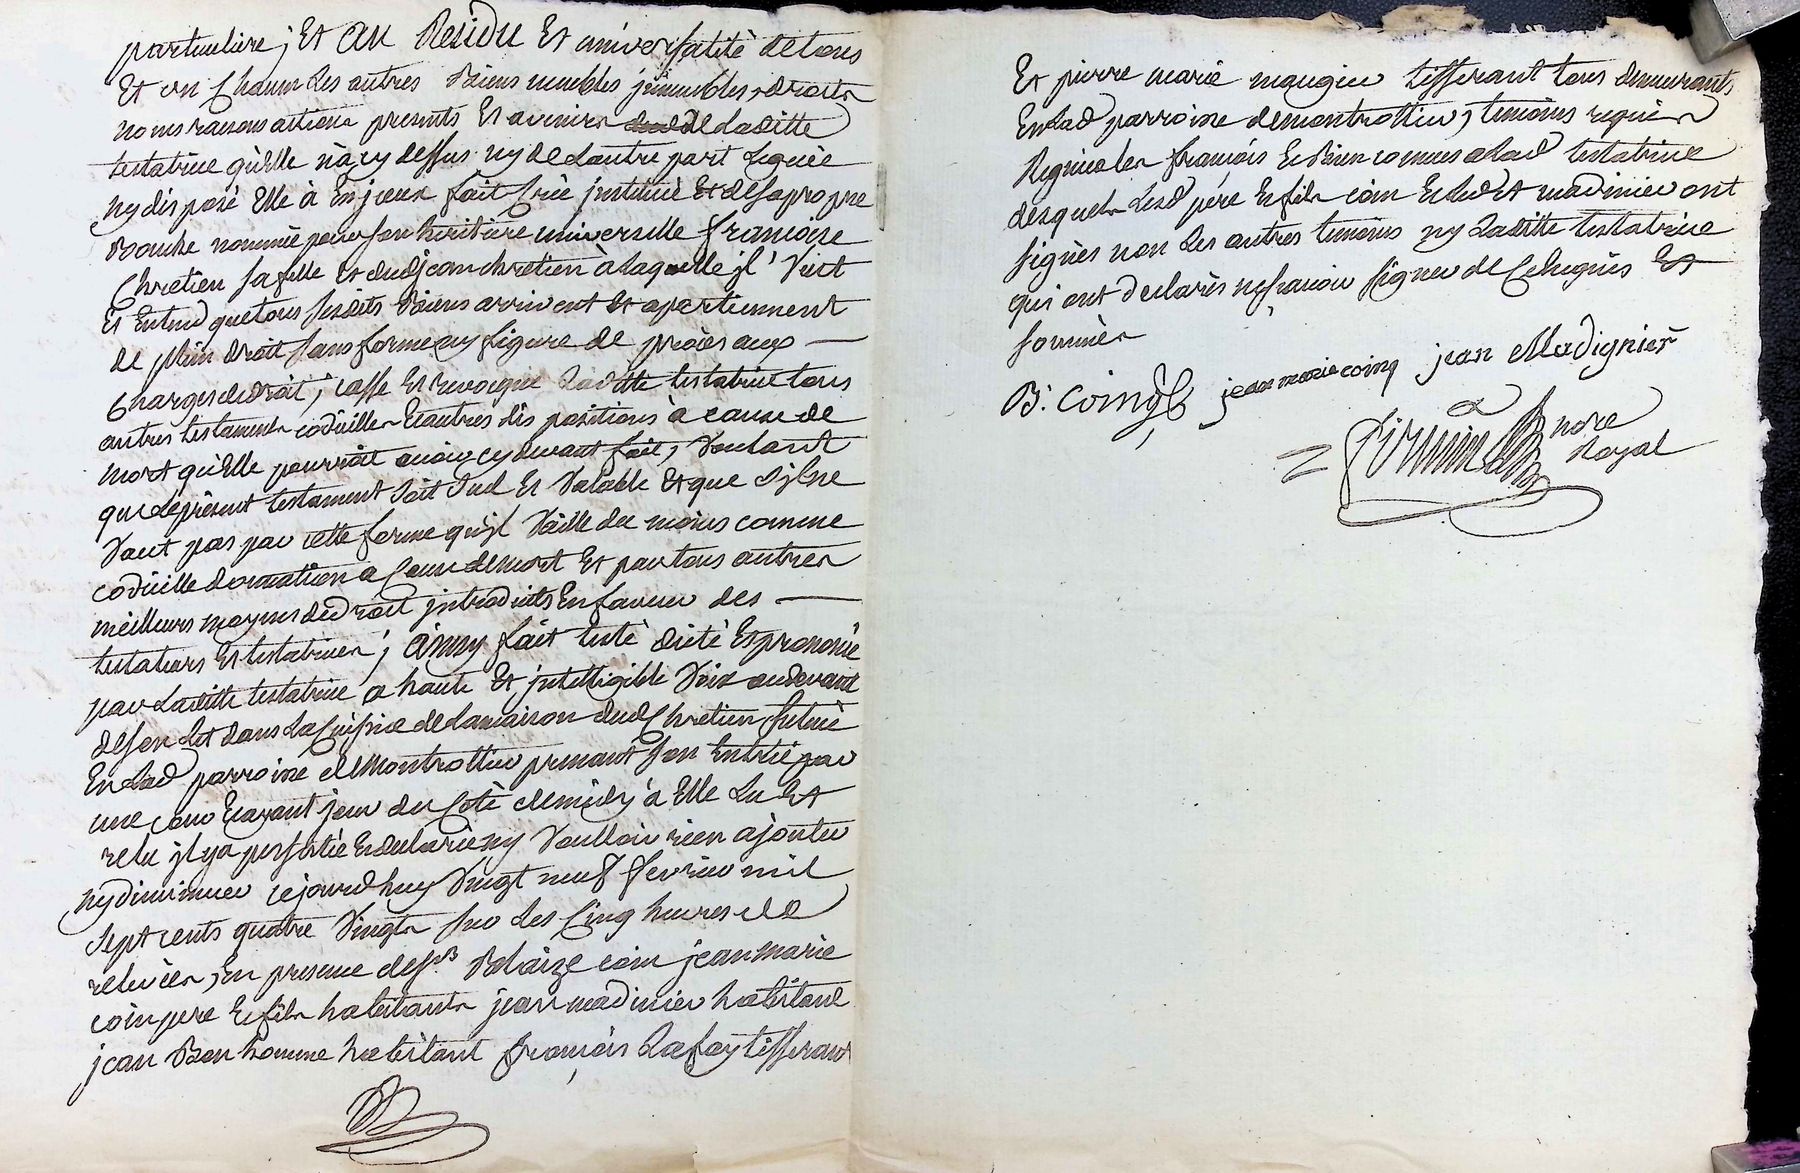 particuliere; Et au Residu Et université de tous
Et un Chacun les autres Biens meubles jmmeubles, droits
noms raisons actions presents Et avenirs de laditte
testatrice qu'elle n'a cy dessus ny de d'autre part leguée
ny disposé Elle à Enjceux fait Créé jnstitué Et de sa propre
Bouche nommée pour son heritiere universelle francoise
Chretien sa fille Et dud jean chretien à laquelle jl Veut
Et Entend que tous sesdits Biens arrivent Et apartiennent
de plein droit sans forme ny figure de procès aux
Charges de droit; casse Et revocque laditte testatrice tous
autres testaments codicilles Et autres dis positions à cause de
mort qu'elle pourroit avoir cy devant fait, Voulant
que le present testament soit seul Et Valable Et que s'jl ne
Vaut pas par cette forme qu'jl Vaille du moins comme
codicille donnation a Cause de mort Et par tous autres
meilleurs moyens de droit jntroduits En faveur des
testateurs Et testatrices; ainsy fait testé dicté Et prononcé
par laditte testatrice a haute Et jntelligible Voix au devant
de son Lit dans la Cuisine de la maison dud Chretien scituée
En lad parroisse de Montrottier prenant son Entrée par
une cour Et ayant jour du Coté de midy à Elle lu Et
relu jl y a persistée Et declarée ny Voulloir rien ajouter
ny diminuer cejourd'huy Vingt neuf fevrier mil
sept cents quatre Vingts sur les Cinq heures de
relevées, En presence des srs Blaize coin jean marie
coin pere Et fils habitants jean madinier habitant
jean Bon homme habitant francois Lafay tisserant
Et pierre marie maugier tisserant tous demeurants
En lad parroisse de montrottier, temoins requis
Regnicoles francois Et Bien connus a lad testatrice
desquels lesd pere Et fils coin Et led madinier ont
signés non les autres temoins ny laditte testatrice
qui ont declarés ny scavoir signer de Ce Enquis Et
sommés
B: coing jean marie coinq jean Madignier
nore
Royal